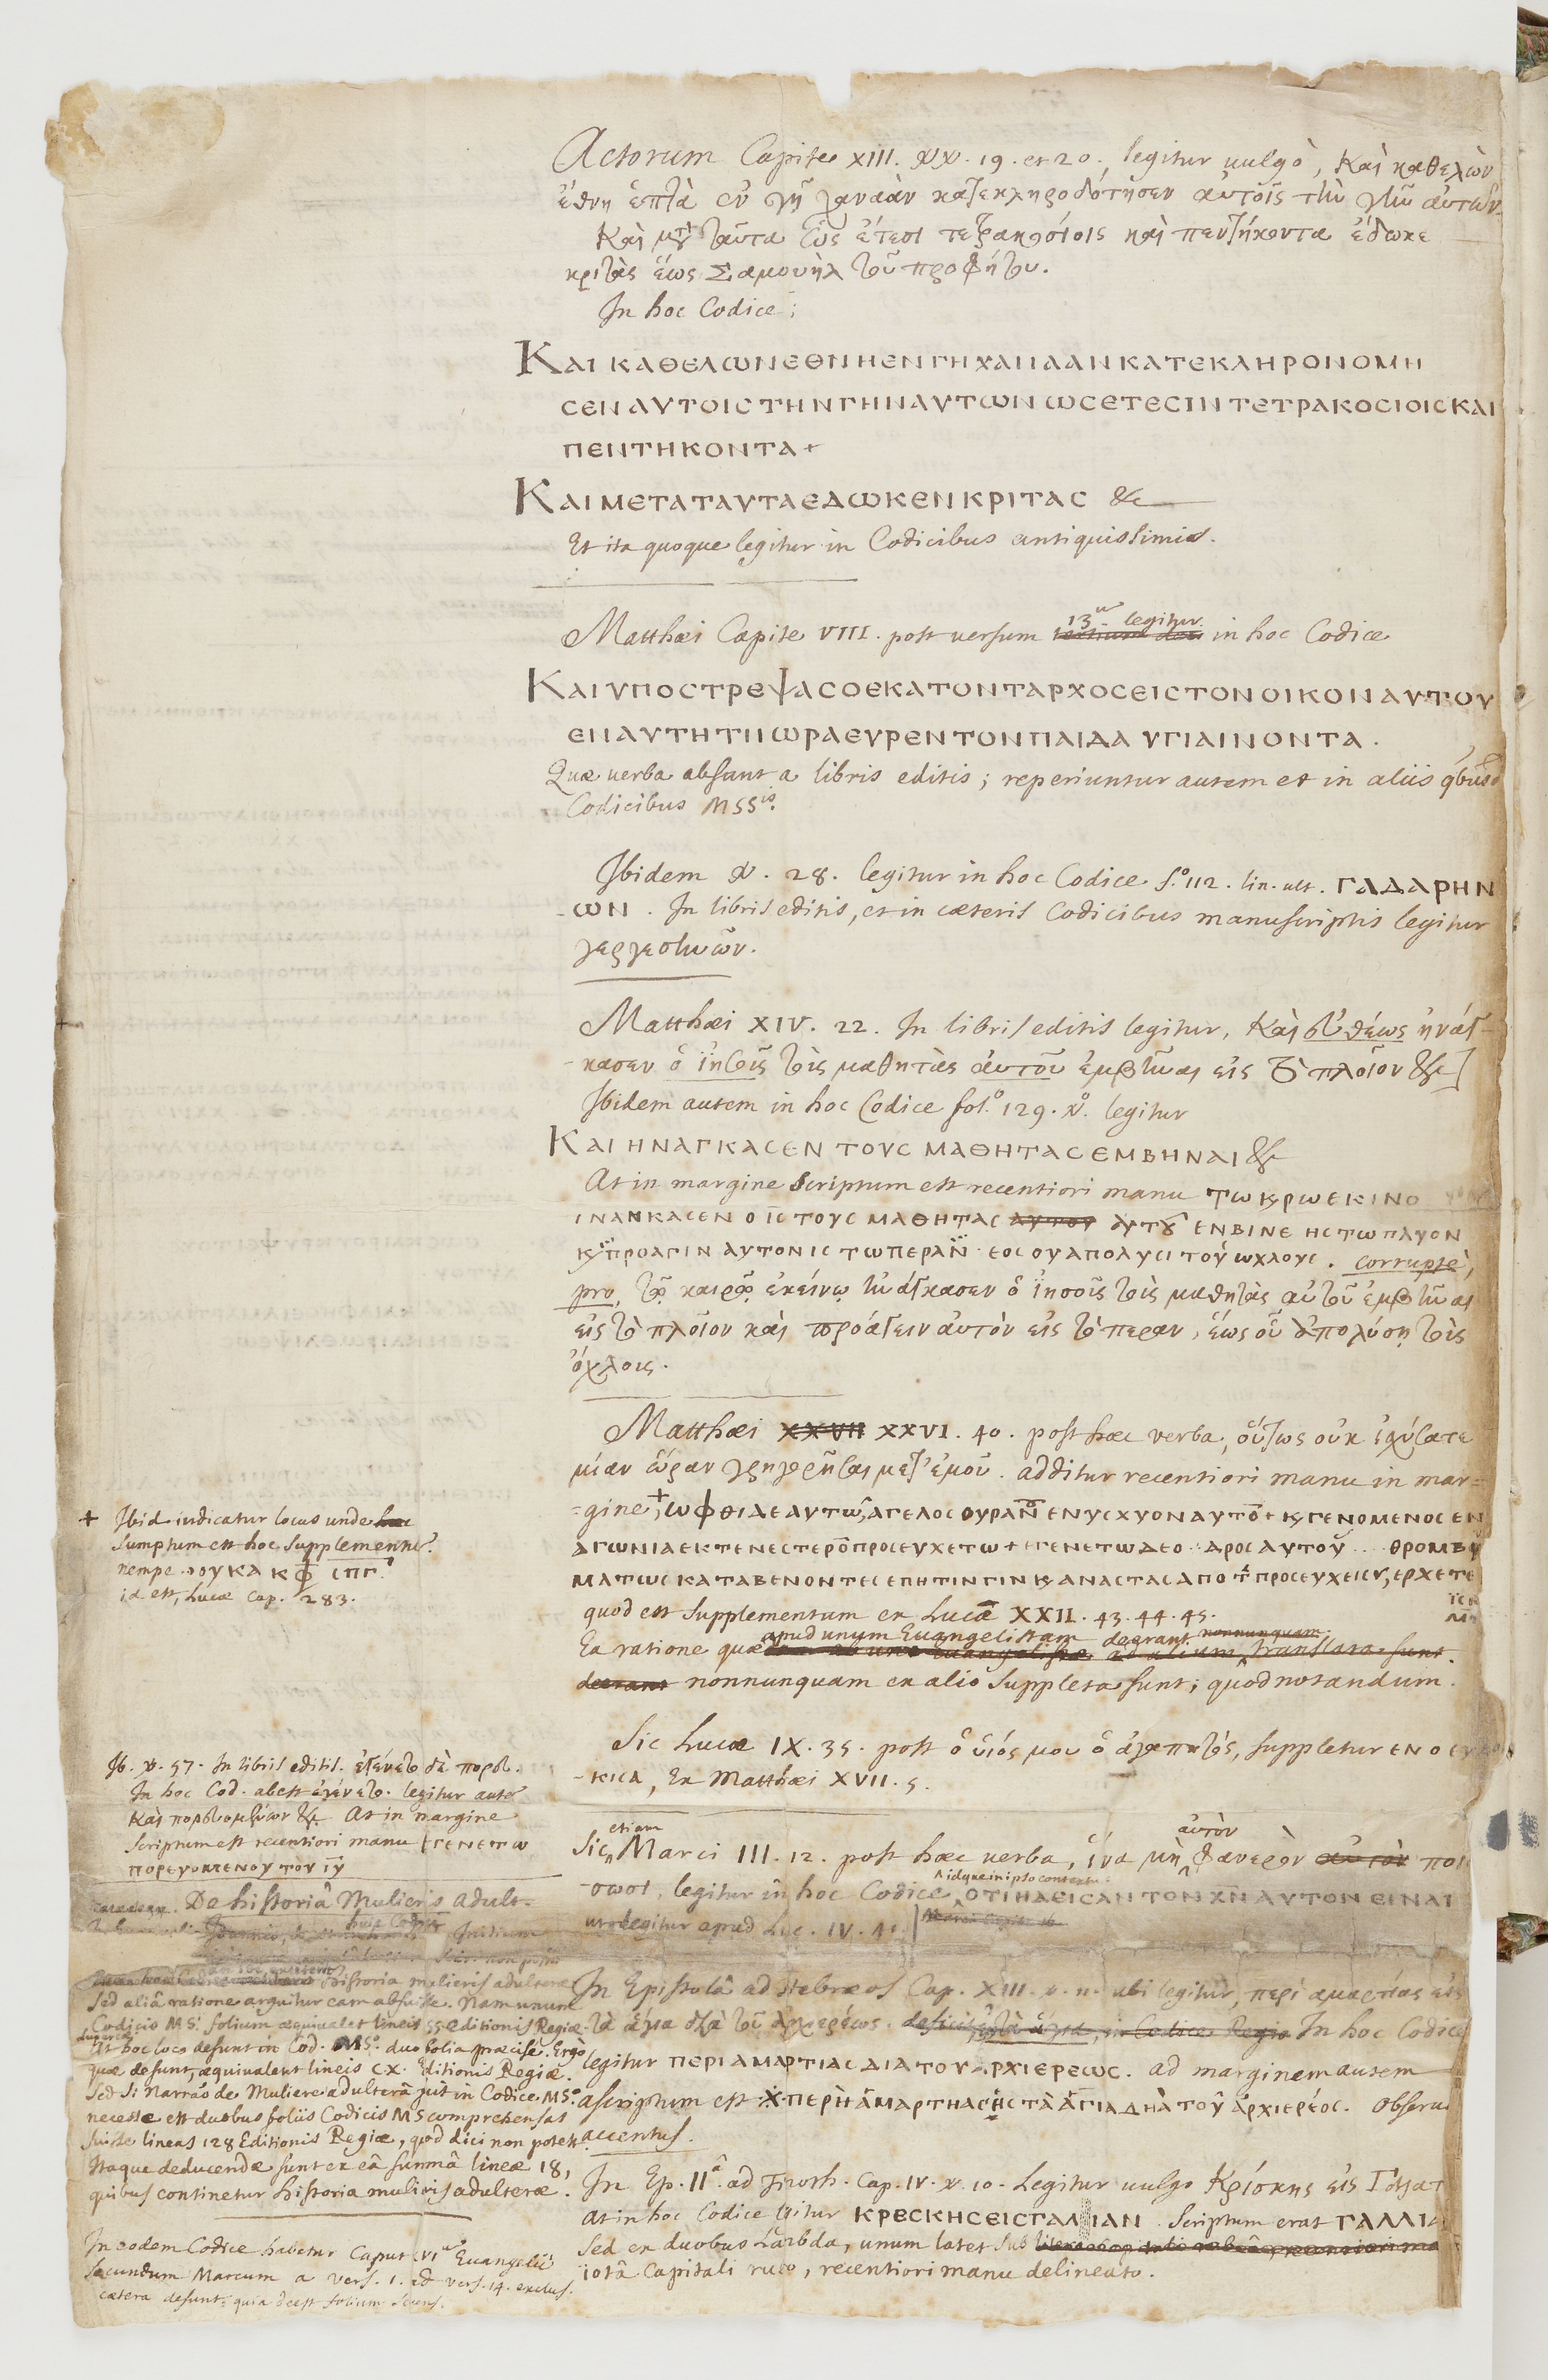 Actorum Capite XIII. ꝟꝟ. 19. et 20., legitur uulgò, Καὶ καθελὼν
ἔθνη ἑπτὰ ἐν γῇ χαναὰν κατεκληροδότησεν αὐτοῖς τὴν γῆν αὐτῶν.
Καὶ μετὰ ταῦτα ὡς ἔτεσι τετρακοσίοις καὶ πεντήκοντα ἔδωκε
κριτὰς ἕως Σαμουὴλ τοῦ προφήτου.
In hoc Codice;
ΚΑΙ ΚΑΘΕΛΩΝ ΕΘΝΗ ΕΝ ΓΗ ΧΑΝΑΑΝ ΚΑΤΕΚΛΗΡΟΝΟΜΗ
CΕΝ ΑΥΤΟΙC ΤΗΝ ΓΗΝ ΑΥΤΩΝ ΩC ΕΤΕCΙΝ ΤΕΤΡΑΚΟCΙΟΙC ΚΑΙ
ΠΕΝΤΗΚΟΝΤΑ +
ΚΑΙ ΜΕΤΑ ΤΑΥΤΑ ΕΔΩΚΕΝ ΚΡΙΤΑC &c
Et ita quoque legitur in Codicibus antiquissimis.
Matthæi Capite VIII. post uersum 13.um legitur in hoc Codice
ΚΑΙ ΥΠΟCΤΡΕΨΑC Ο ΕΚΑΤΟΝΤΑΡΧΟC ΕΙC ΤΟΝ ΟΙΚΟΝ ΑΥΤΟΥ
ΕΝ ΑΥΤΗ ΤΗ ΩΡΑ ΕΥΡΕΝ ΤΟΝ ΠΑΙΔΑ ΥΓΙΑΙΝΟΝΤΑ.
Quæ uerba absunt a libris editis; reperiuntur autem et in aliis
Codicibus MSSis.
Ibidem ꝟ. 28. legitur in hoc Codice f.o 112. lin. ult. ΓΑΔΑΡΗΝ
-ΩΝ. In libris editis, et in cæteris Codicibus manuscriptis legitur
γεργεσηνῶν.
Matthæi XIV. 22. In libris editis legitur, Καὶ εὐθέως ἠνάγ-
-κασεν ὁ ἰησοῦς τοὺς μαθητὰς αὐτοῦ ἐμβῆναι εἰς τὸ πλοῖον &c]
Ibidem autem in hoc Codice fol.o 129. ꝟo. legitur
ΚΑΙ ΗΝΑΓΚΑCΕΝ ΤΟΥC ΜΑΘΗΤΑC ΕΜΒΗΝΑΙ &c
At in margine scriptum est recentiori manu ΤΩ ΚΡΩ ΕΚΙΝΟ
ΙΝΑΝΚΑCΕΝ Ο ΙC ΤΟΥC ΜΑΘΗΤΑC ΑΥΤΟΥ ΑΥΤȢ ΕΝΒΙΝΕ ΗC ΤΩ ΠΛΥΟΝ
Ϗ ΠΡΟΑΓΙΝ ΑΥΤΟΝ ΙC ΤΩ ΠΕΡΑΝ ΕΟC ΟΥ ΑΠΟΛΥCΙ ΤΟΥ ΩΧΛΟΥC. corruptè,
pro, τῷ καιρῷ ἐκείνῳ ἠνάγκασεν ὁ ἰησοῦς τοὺς μαθητὰς αὐτοῦ ἐμβῆναι
εἰς τὸ πλοῖον καὶ προάγειν αὐτὸν εἰς τὸ περαν, ἕως οὗ ἀπολύσῃ τοὺς
ὄχλους.
Matthæi XXVII XXVI. 40. post hæc verba, οὕτως οὐκ ἰσχύσατε
μίαν ὥραν γρηγορῆσαι μετ' ἐμοῦ. additur recentiori manu in mar-
-gine, + ΩΦΘΙ ΔΕ ΑΥΤΩ, ΑΓΕΛΟC ΟΥΡΑΝΟ ΕΝΥCΧΥΟΝ ΑΥΤΟ + Ϗ ΓΕΝΟΜΕΝΟC ΕΝ
ΑΓΩΝΙΑ ΕΚΤΕΝΕCΤΕΡΟ ΠΡΟCΕΥΧΕΤΩ + ΕΓΕΝΕΤΩ ΔΕ Ο ΔΡΟC ΑΥΤΟΥ .. ΘΡΟΜΒΥ
ΜΑΤΩC ΚΑΤΑΒΕΝΟΝΤΕC ΕΠΗ ΤΙΝ ΓΙΝ Ϗ ΑΝΑCΤΑC ΑΠΟ Τ ΠΡΟCΕΥΧΕΙC, ΕΡΧΕΤΕ
quod est supplementum ex Lucæ XXII. 43. 44. 45.
Ea ratione quæ apud unum Euangelistam deerant
nonnunquam ex alio suppleta sunt; quod notandum.
Sic Lucæ IX. 35. post ὁ υἱός μου ὁ ἀγαπητός, suppletur ΕΝ Ο
-ΚΙCΑ, Ex Matthæi XVII. 5.
Sic etiam Marci III. 12. post hæc uerba, ἵνα μὴ αὐτὸν φανερὸν ποι
-σωσι, legitur in hoc Codice, idque in ipso contextu, ΟΤΙ ΗΔΕΙCΑΝ ΤΟΝ ΧΝ ΑΥΤΟΝ ΕΙΝΑΙ
ut legitur apud Luc. IV. 41.
In Epistolâ ad Hebræos Cap. XIII. ꝟ. 11. ubi legitur, περὶ αμαρτίας εἰς
τὰ ἅγια διὰ τοῦ ἀρχιερέως. In hoc Codice
legitur ΠΕΡΙ ΑΜΑΡΤΙΑC ΔΙΑ ΤΟΥ ΑΡΧΙΕΡΕΩC. ad marginem autem
ascriptum est ΠΕΡῊ ἉΜΑΡΤΗΑC ῊC ΤᾺ ἍΓΙΑ ΔΗᾺ ΤΟΥ͂ ἈΡΧΙΕΡΈΟC. Obserua
accentus.
In Ep. IIâ. ad Timoth. Cap. IV. ꝟ. 10. Legitur uulgo Κρίσκης εἰς Γαλατ
at in hoc Codice legitur ΚΡΕCΚΗC ΕΙC ΓΑΛΙΑΝ. Scriptum erat ΓΑΛΛΙΑ
sed ex duobus Lambda, unum latet sub
iotâ Capitali rubro, recentiori manu delineato.
+ Ibid indicatur locus unde
sumptum est hoc supplementum.
nempe ΛΟΥΚΑ ΚΦ CΠΓ.
id est, Lucæ Cap. 283.
Ib. ꝟ. 57. In libris editis. ἐγένετο δὲ πορευ.
In hoc Cod. abest ἐγένετο. legitur autem
Καὶ πορευομένων &c. At in margine
scriptum est recentiori manu ΕΓΕΝΕΤΩ
ΠΟΡΕΥΟΜΕΝΟΥ ΤΟΥ ΙΥ
De historiâ Mulieris adult.
historia mulieris adulteræ
sed aliâ ratione arguitur eam abfuisse. Nam unum
Codicis MSi folium æquivalet lineis 55 editionis Regiæ.
At hoc loco desunt in Cod. MSo. duo folia præcise. Ergò
quæ desunt, æquivalent lineis CX. Editionis Regiæ.
Sed si Narrao de Muliere adulterâ fuit in Codice MSo.
necesse est duobus foliis Codicis MS comprehensas
fuisse lineas 128 Editionis Regiæ, quod dici non potest.
Itaque deducendæ sunt ex eâ summâ lineæ 18,
quibus continetur historia mulieris adulteræ.
In eodem Codice habetur Caput XVIum Euangelii
secundum Marcum a vers. 1. ad vers. 14. exclus.
cætera desunt, quia deest folium